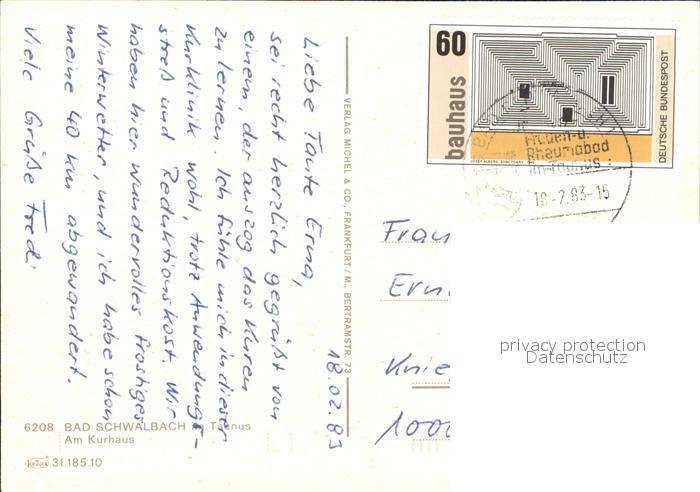 18.02.83
Liebe Tante Erna,
sei recht herzlich gegrüßt von
einem, der auszog das Kuren
zu lernen. Ich fühle mich in dieser
Kurklinik wohl, trotz Anwendungs-
streß und Reduktionskost. Wir
haben hier wundervolles frostiges
Winterwetter, und ich habe schon
meine 40 km abgewandert.
Viele Grüße Fredi
VERLAG MICHEL & CO., FRANKFURT/M., BERTRAMSTR. 73
6208 BAD SCHWALBACH Taunus
Am Kurhaus
KRÜGER 31.185.10
60
bauhaus
DEUTSCHE BUNDESPOST
Frauen-u.
Rheumabad
im Taunus
18-2.83-15
Frau
Ern
Knie
1000
privacy protection
Datenschutz